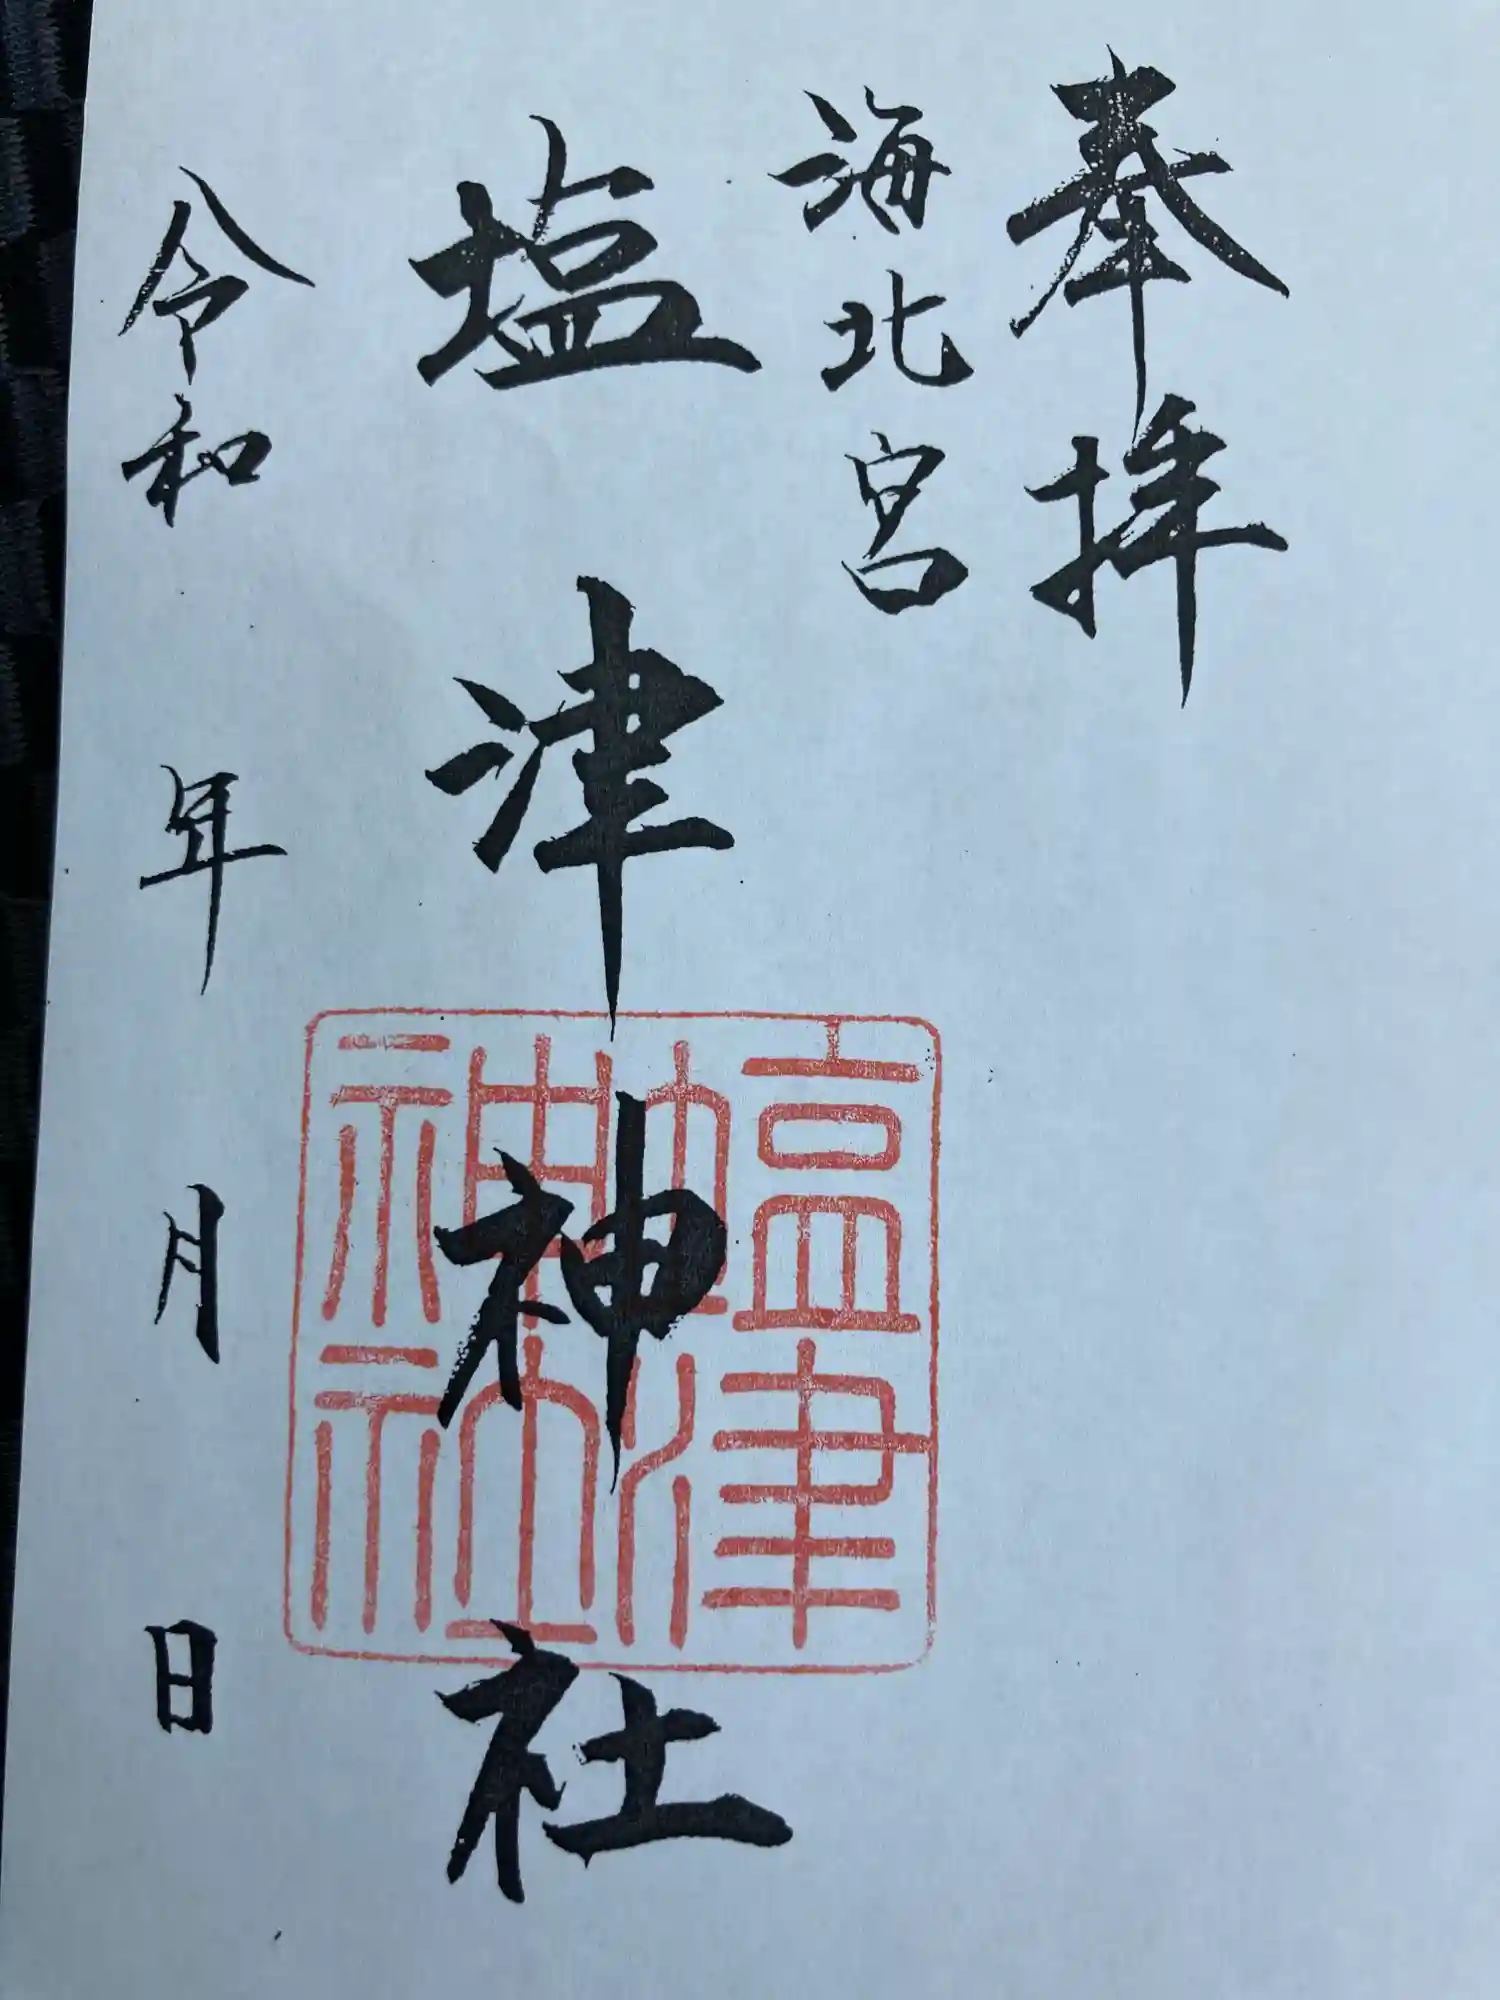 奉拝
海北宮
塩津神社
令和 年 月 日
塩津神社